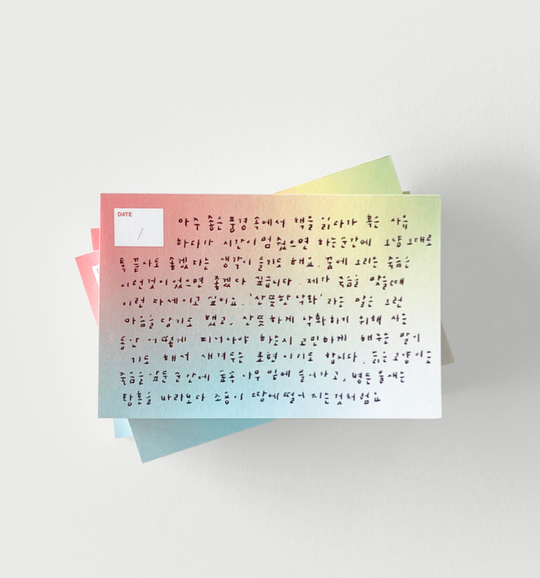 DATE
/
아주 좋은 풍경 속에서 책을 읽다가 혹은 사유
하다가 시간이 멈췄으면 하는 순간에 그냥 그대로
툭 끝나도 좋겠다는 생각이 들기도 해요. 꿈에 그리는 죽음은
이런것이었으면 좋겠다 싶습니다. 제가 죽음을 맞을때
이런 자세이고 싶어요. '산뜻한 악화' 라는 말은 그런
마음을 담기도 했고, 산뜻하게 악화하기 위해 사는
동안 어떻게 피어나야 하는지 고민하게 해주는 말이
기도 해서 새겨두는 표현이기도 합니다. 늙은 고양이는
죽음을 앞둔 순간에 숲속 나무 밑에 들어가고, 병든 올빼는
황혼을 바라보다 조용히 땅에 떨어지는것처럼요